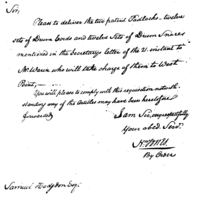 Sir,
Please to deliver the two patent Padlocks, twelve
sets of Drum Cords and twelve Sets of Drum Snares
mentioned in the Secretary's letter of the
Mr. who will take charge of them to West
Point,
You will please to comply with this requisition notwith
standing any of the articles may have been heretofore
forwarded
I am Sir, respectfully
Your obed. Servt.
By Order
Samuel Hodgdon Esqr.